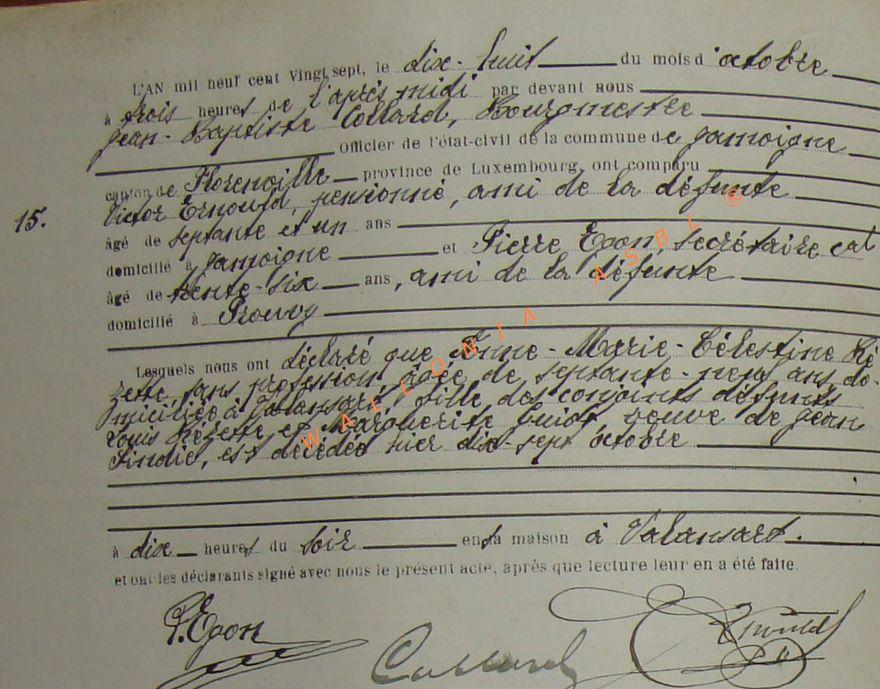 L'AN mil neuf cent vingt sept, le dix-huit du mois d'octobre
à trois heures de l'après-midi par devant nous
Jean-Baptiste Collard, Bourgmestre
Officier de l'état-civil de la commune de Jamoigne
canton de Florenville province de Luxembourg, ont comparu
15. Victor Ernould, pensionné, ami de la défunte
âgé de septante et un ans
domicilié à Jamoigne et Pierre Egon, secrétaire cal
âgé de trente-six ans, ami de la défunte
domicilié à Prouvy
Lesquels nous ont déclaré que Anne-Marie-Célestine Ré
zette, sans profession, âgée de septante-neuf ans, do-
miciliée à Valansart, fille des conjoints défunts
Louis Rézette et Marguerite Guiot, veuve de Jean
Sindic, est décédée hier dix-sept octobre
à dix heures du soir en sa maison à Valansart.
et ont les déclarants signé avec nous le présent acte, après que lecture leur en a été faite.
P. Egon Collard Ernould
WALLONIA ASBL ®